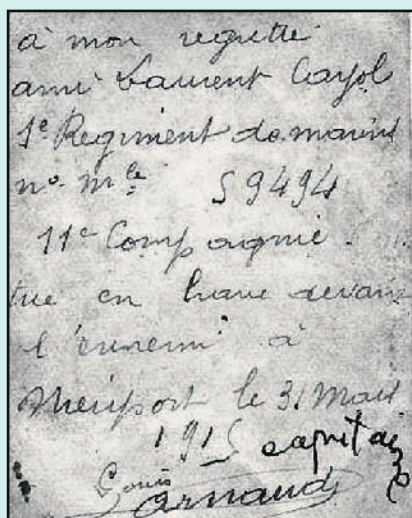 à mon regretté
ami Laurent Cayol
1e Regiment de marins
no. mle S 9494
11e Compagnie.
tue en brave devant
l'ennemi à
Nieuport le 31 Mars
1915 capitaine
Louis
Arnaud